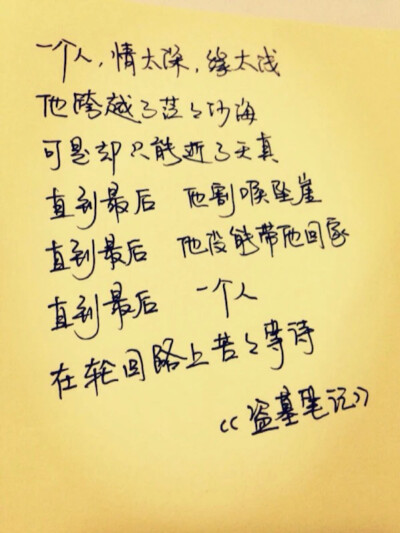 一个人，情太深，缘太浅
他跨越了茫々沙海
可是却只能逝了天真
直到最后 他割喉坠崖
直到最后 他没能带他回家
直到最后 一个人
在轮回路上苦々等待
《盗墓笔记》